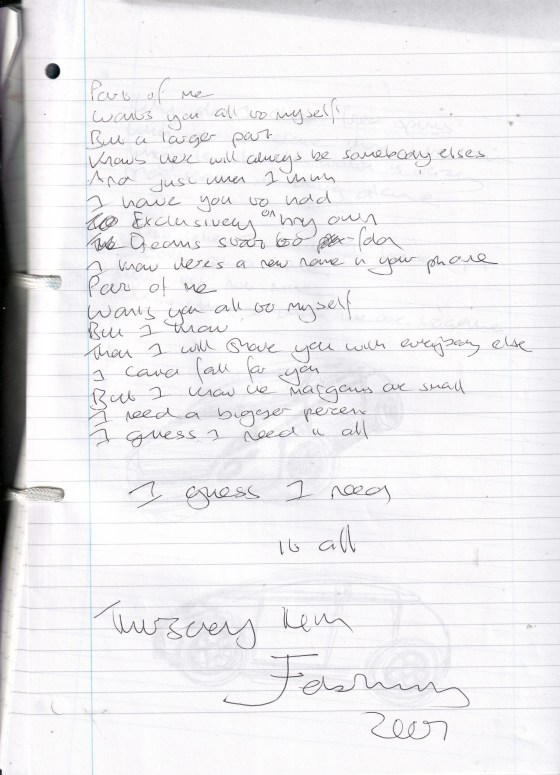 Part of me
wants you all to myself
But a larger part
Knows there will always be somebody elses
And just when I think
I have you to hold
Exclusively on my own
The Dreams start to fold
I know theres a new name in your phone
Part of me
Wants you all to myself
But I know
That I will share you with everybody else
I could fall for you
But I know the margains are small
I need a bigger percent
I guess I need it all
I guess I need
it all
Thursday
February
2007